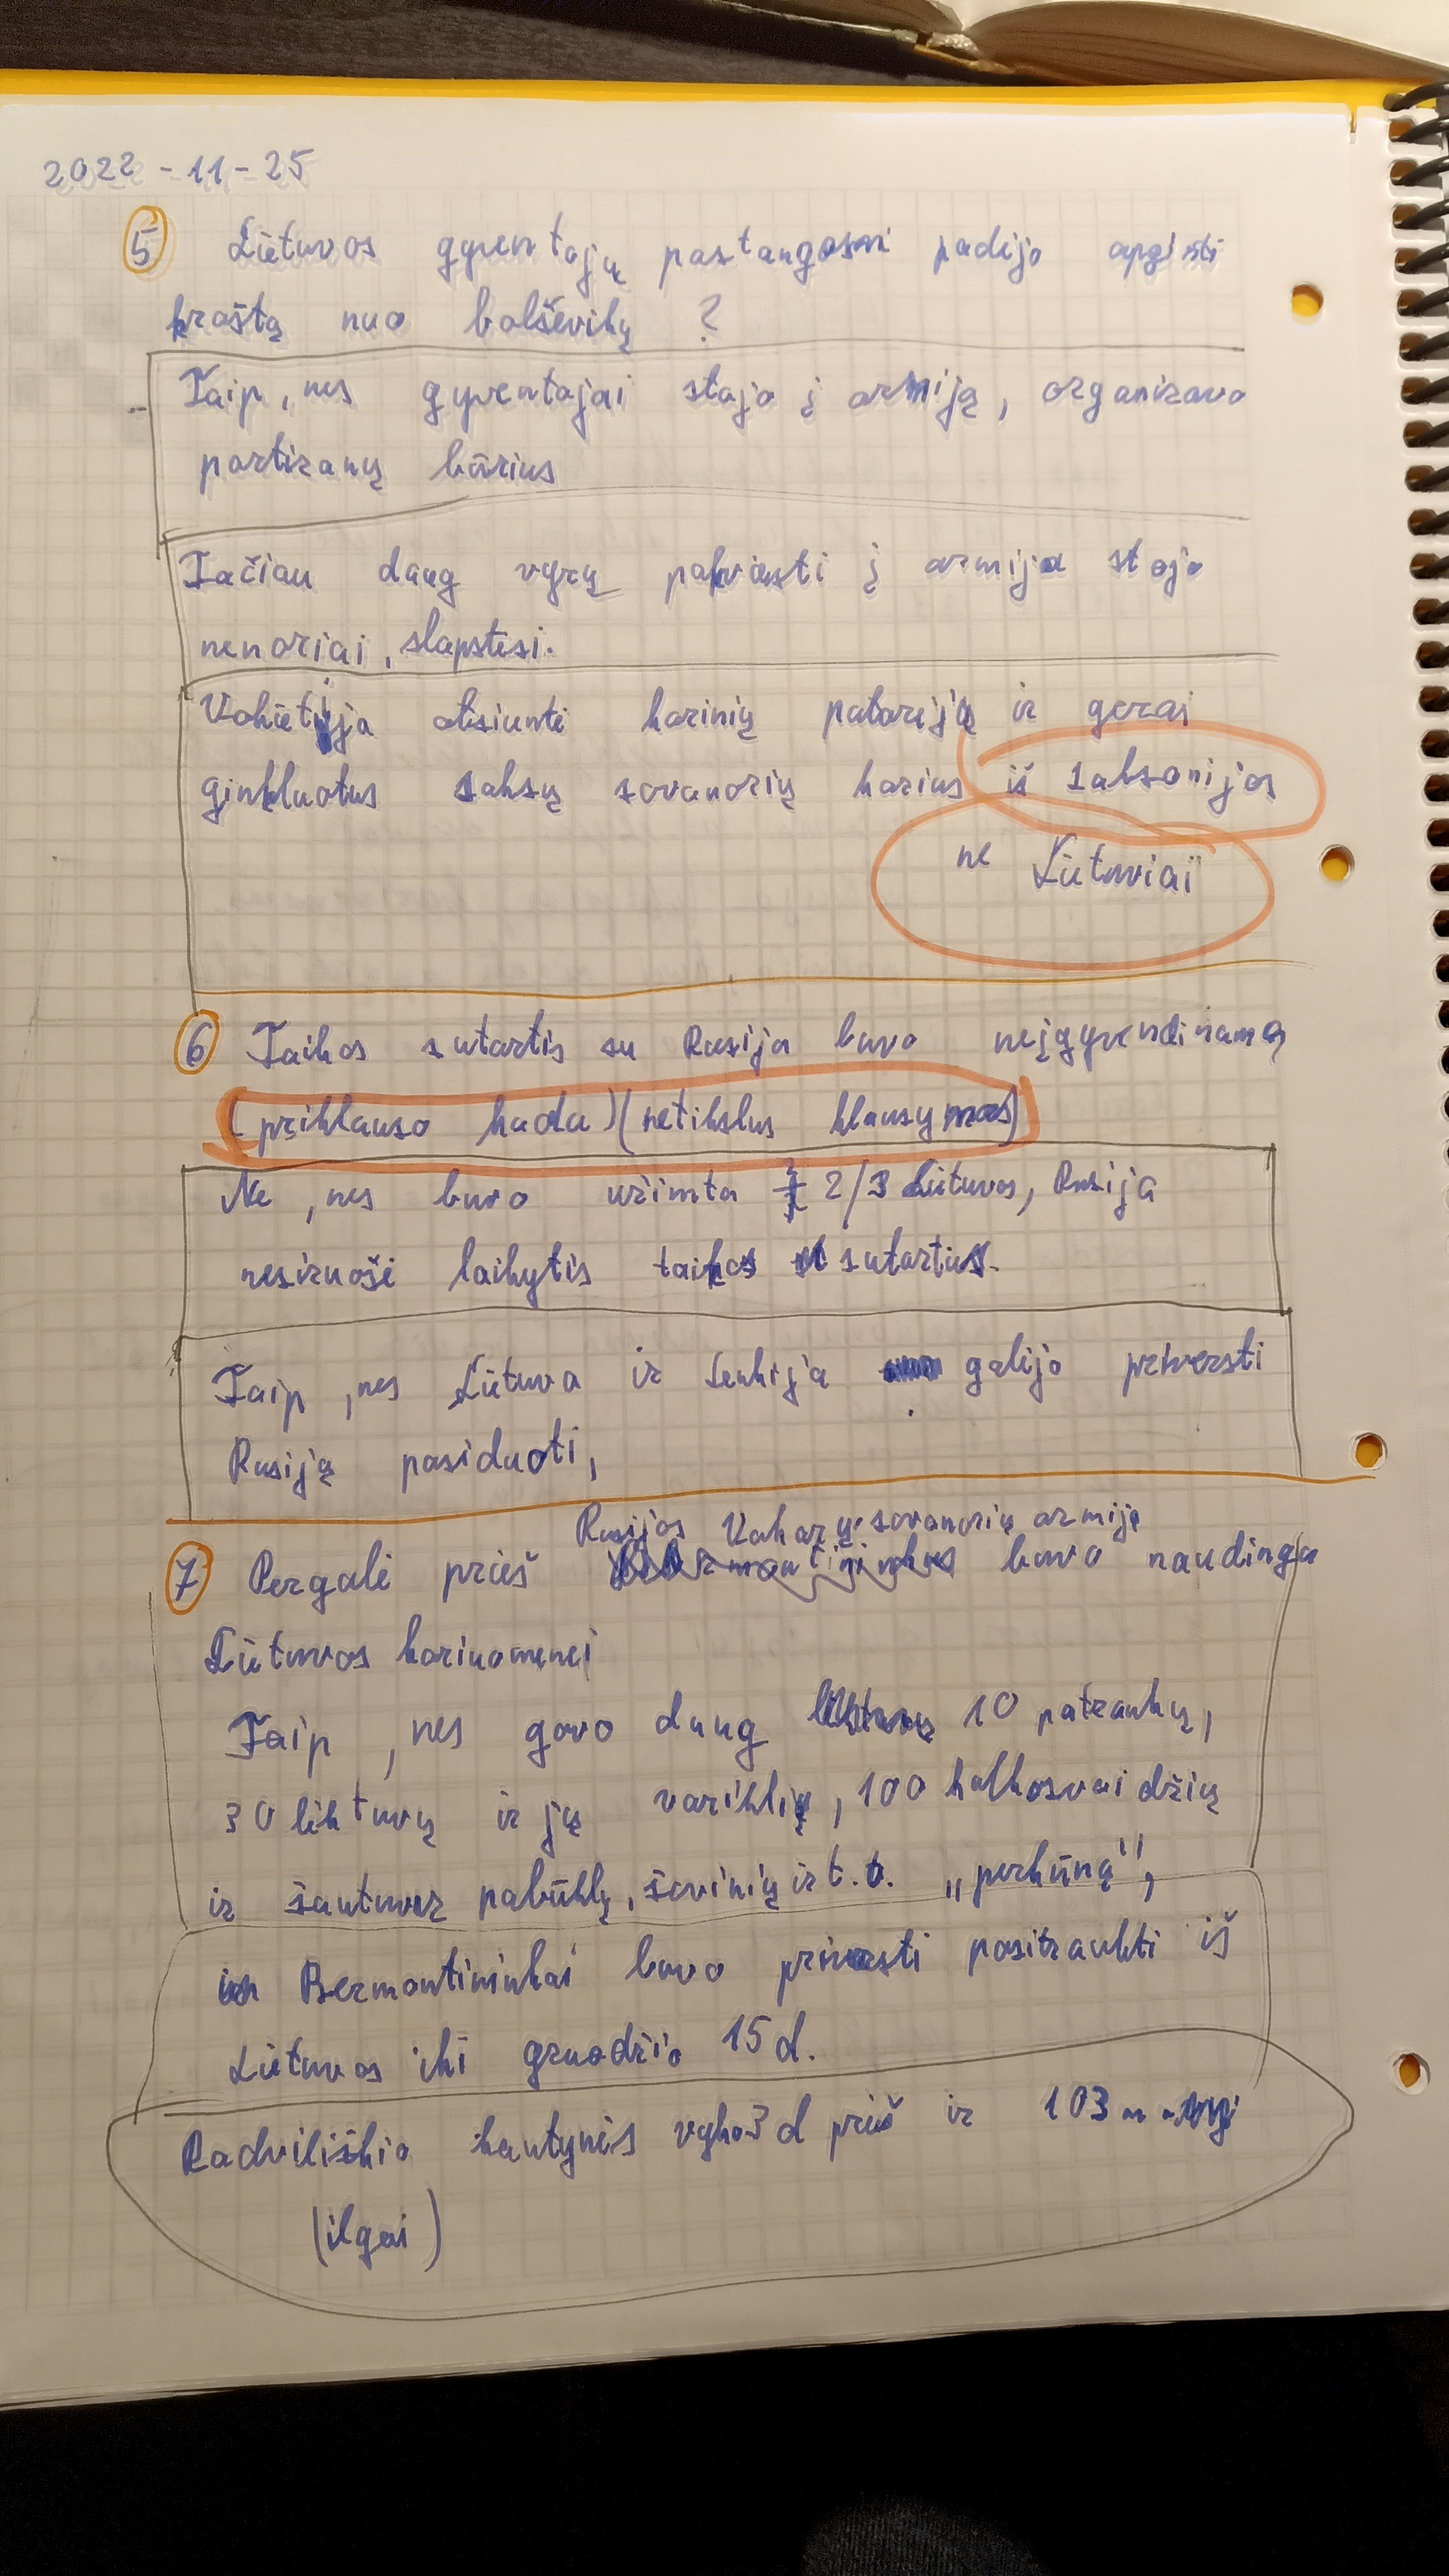 2022-11-25
5 Lietuvos gyventojų pastangosm padėjo apginti
kraštą nuo bolševikų ?
Taip, nes gyventojai stojo į armiją, organizavo
partizanų būrius
Tačiau daug vyrų pakviesti į armija stojo
nenoriai, slapstėsi.
Vokietija atsiuntė karinių patarėjų ir gerai
ginkluotus saksų savanorių karius iš saksonijos
ne Lietuviai
6 Taikos sutartis su Rusija buvo neįgyvendinama
(priklauso kada) (netikslus klausymas)
Ne, nes buvo užimta 2/3 Lietuvos, Rusija
nesiruošė laikytis taikos sutarties.
Taip, nes Lietuva ir Lenkija galėjo priversti
Rusiją pasiduoti,
Rusijos Vakarų savanorių armija
7 Pergalė prieš buvo naudinga
Lietuvos kariuomenei
Taip, nes gavo daug 10 patrankų,
30 lėktuvų ir jų variklių, 100 kulkosvaidžių
ir šautuvų pabūklų, šovinių ir t.t. „perkūną",
Bermontininkai buvo priversti pasitraukti iš
Lietuvos iki gruodžio 15 d.
Radviliškio kautynės vyko 3 d prieš ir 103
(ilgai)